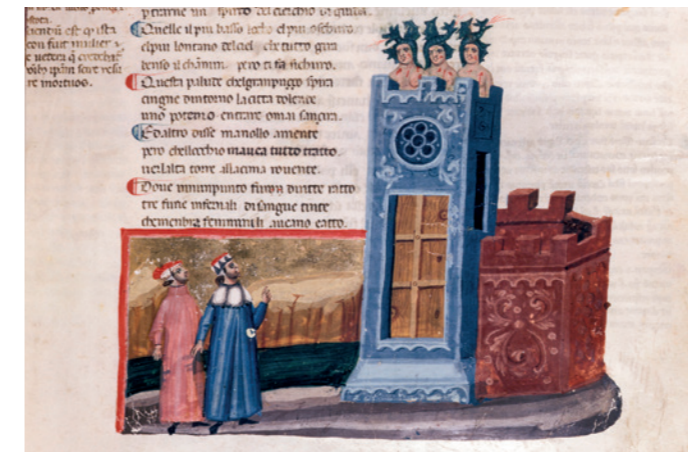 ptrarne un spirto del cierchio di giuda.
Quelle il piu basso locho elpiu obscuro
elpiu lontano dalciel che tutto gira
benso il chamin pero ti fa sichuro.
Questa palude chelgranpuzzo spira
cingne dintorno lacitta dolente
uno potemo entrare omai sanzira.
Edaltro disse manollo amente
pero chellocchio mauea tutto tratto
uerlalta torre allacima rouente.
Doue inunpunto furon diritte ratto
tre furie infernali disangue tinte
chemembra feminili aueano eatto.
con fuit mulier
re mortuos.